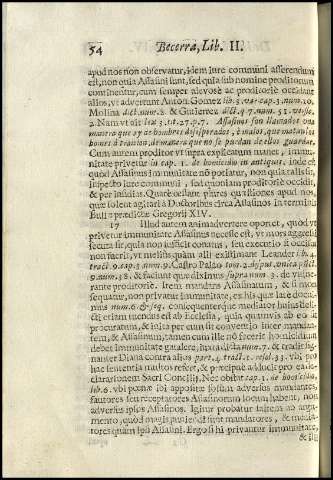 54 Becerra, Lib. II.
apud nos non observatur, idem iure communi asserendum
est, non quia Assasini sunt, sed quia sub nomine proditorum
continentur, cum semper alevosè ac proditoriè occidant
alios, vt advertunt Anton Gomez lib. 3. var. cap. 3. num. 10.
Molina dict. num. 2. & Gutierrez dict. q. 7. num. 51.
2. Nam vt ait lex 3. tit. 27. p. 7. Assasinos son llamados una
manera que ay de hombres desesperados, è malos, que matan a los
homes à traicion, de manera que no se puedan dellos guardar.
Cum autem proditor vt supra explicatum manet, immunitate
privetur in cap. 1. de homicidio in antiquis. inde est
quod Assasinus immunitate nõ potiatur, non quia talis sit,
inspecto iure communi, sed quoniam proditoriè occidit,
& per insidias. Quare cedant plures quæstiones apud nos,
quæ solent agitari à Doctoribus circa Assasinos in terminis
Bullæ prædictæ Gregorij XIV.
17 Illud autem animadvertere oportet, quod vt
privetur immunitate Assasinus necesse est, vt mors aggressi
secuta sit, quia non sufficit conatus, seu executio si occisus
non fuerit, vt melius quàm alij existimant Leander
tract. 9. cap. 3. num. 9. Castro Palao tom. 2. disput. unica punct.
9. num. 38. & faciunt quæ diximus supra num. 3. de vulnerante
proditoriè. Item mandans Assasinatum, & si mors
sequatur, non privatur immunitate, ex his quæ late docuimus
num. 6. & seq. consequenterque mediator huiusdelicti
etiam mandans est ab Ecclesia, quia quamvis ab eo sit
procuratum, & inita per eum sit conventio inter mandantem,
& Assasinum, tamen cum ille nõ fecerit homicidium
debet immunitate gaudere, iuxta dicta num. 7. & tradit signanter
Diana contra alios part. 4. tract. 1. resol. 33. vbi pro
hac sententia multos refert, & præcipuè adducit pro ea declarationem
Sacri Concilij. Nec obstat cap. 1. de homicidio,
lib. 6. vbi poenæ ibi appositæ solùm adversus mandantes,
fautores seu receptatores Assasinorum locum habent, non
adversus ipsos Assasinos. Igitur probatur saltem ab argumento,
quod magis puniendi sunt mandatores, & mediatores
quàm ipsi Assasini. Ergo si hi privantur immunitate,
& illi